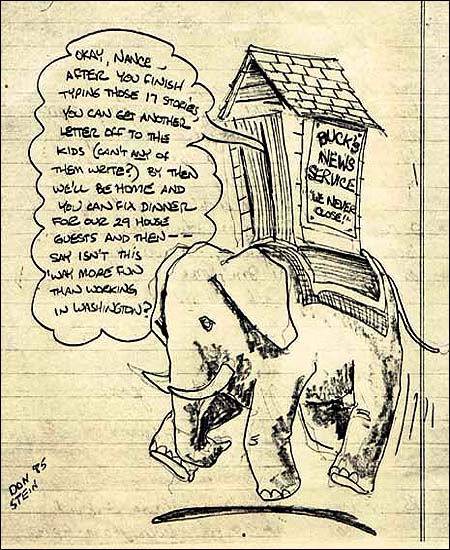 OKAY, NANCE -
AFTER YOU FINISH
TYPING THOSE 17 STORIES,
YOU CAN GET ANOTHER
LETTER OFF TO THE
KIDS (CAN'T ANY OF
THEM WRITE?) BY THEN
WE'LL BE HOME AND
YOU CAN FIX DINNER
FOR OUR 29 HOUSE
GUESTS AND THEN --
SAY ISN'T THIS
WAY MORE FUN
THAN WORKING
IN WASHINGTON?
BUCK'S
NEWS
SERVICE
"WE NEVER
CLOSE!"
DON '95
STEIN